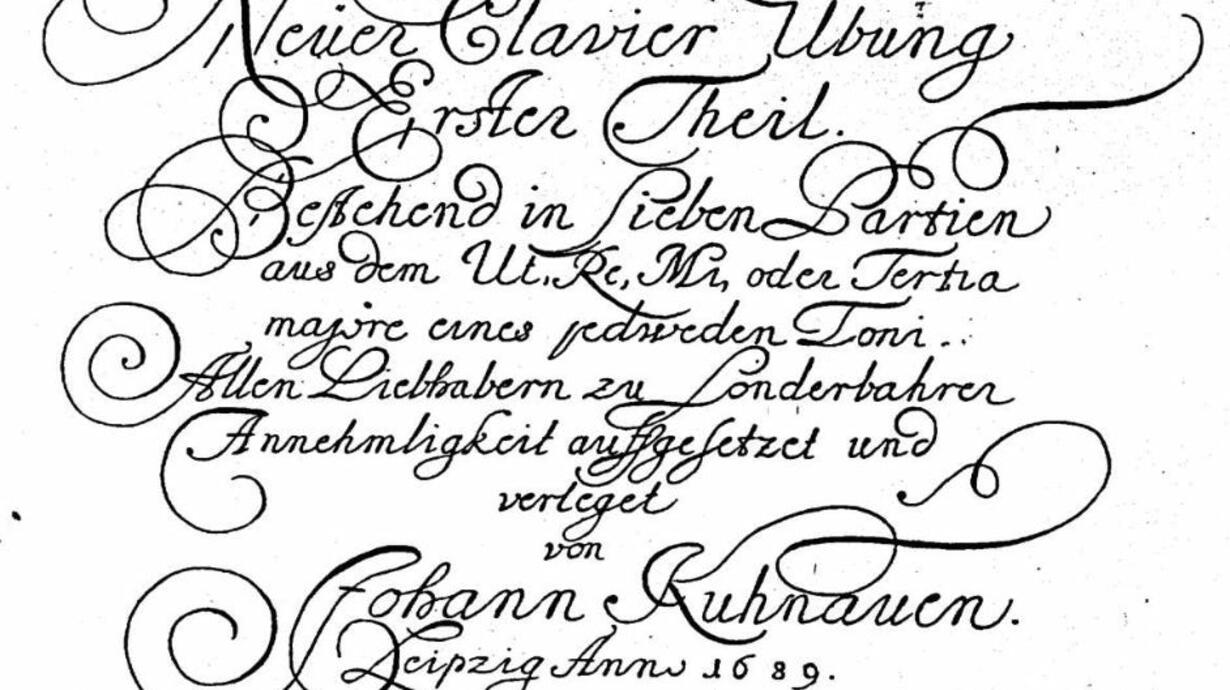 Neüer Clavier Übung
Erster Theil.
Bestehend in Sieben Partien
aus dem Ut, Re, Mi, oder Tertia
majore eines jedweden Toni..
Allen Liebhabern zu Sonderbahrer
Annehmligkeit auffgesetzet und
verleget
von
Johann Kuhnauen.
Leipzig Anno 1689.